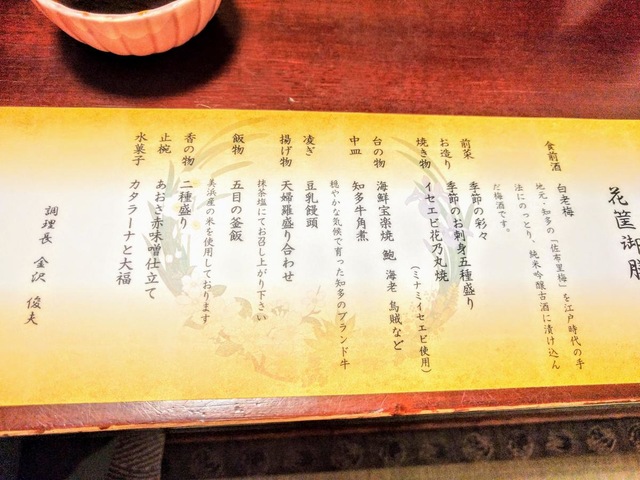 花筐御膳
食前酒 白老梅
地元・知多の「佐布里梅」を江戸時代の手
法にのっとり、純米吟醸古酒に漬け込ん
だ梅酒です。
前菜 季節の彩々
お造り 季節のお刺身五種盛り
焼き物 イセエビ花乃丸焼
(ミナミイセエビ使用)
台の物 海鮮宝楽焼 鮑 海老 烏賊など
中皿 知多牛角煮
穏やかな気候で育った知多のブランド牛
凌ぎ 豆乳饅頭
揚げ物 天婦羅盛り合わせ
抹茶塩にてお召し上がり下さい
飯物 五目の釜飯
美浜産の米を使用しております
香の物 二種盛り
止椀 あおさ赤味噌仕立て
水菓子 カタラーナと大福
調理長 金沢 俊夫